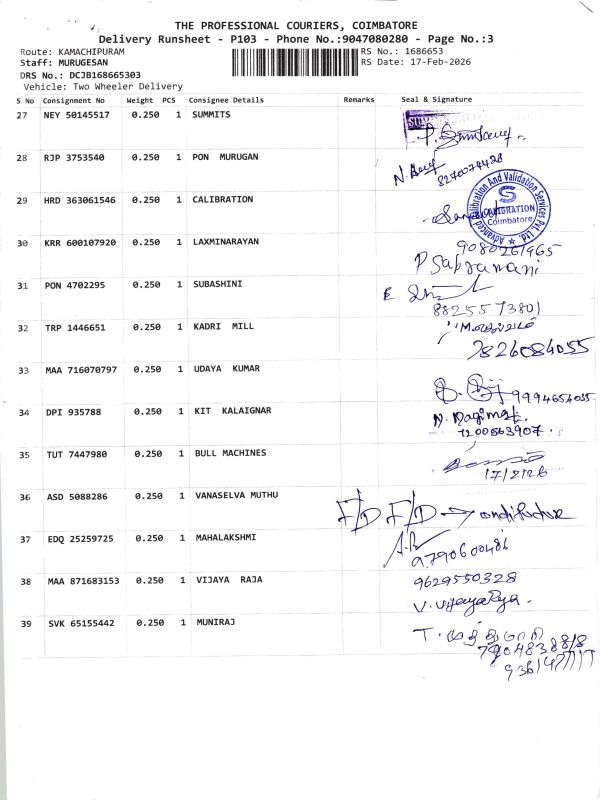 THE PROFESSIONAL COURIERS, COIMBATORE
Delivery Runsheet - P103 - Phone No.:9047080280 - Page No.:3
Route: KAMACHIPURAM
RS No.: 1686653
Staff: MURUGESAN
RS Date: 17-Feb-2026
DRS No.: DCJB168665303
Vehicle: Two Wheeler Delivery
S No Consignment No Weight PCS Consignee Details Remarks Seal & Signature
27 NEY 50145517 0.250 1 SUMMITS
28 RJP 3753540 0.250 1 PON MURUGAN
8270074428
29 HRD 363061546 0.250 1 CALIBRATION
Advanced Calibration And Validation Services Pvt. Ltd.
S
CALIBRATION
Coimbatore
30 KRR 600107920 0.250 1 LAXMINARAYAN
9080261965
P Sabramani
31 PON 4702295 0.250 1 SUBASHINI
8825573801
32 TRP 1446651 0.250 1 KADRI MILL
7826084055
33 MAA 716070797 0.250 1 UDAYA KUMAR
9994654035
34 DPI 935788 0.250 1 KIT KALAIGNAR
7200563907
35 TUT 7447980 0.250 1 BULL MACHINES
17/2/26
36 ASD 5088286 0.250 1 VANASELVA MUTHU
37 EDQ 25259725 0.250 1 MAHALAKSHMI
9790600486
38 MAA 871683153 0.250 1 VIJAYA RAJA
9629550328
V. Vijaya Raja.
39 SVK 65155442 0.250 1 MUNIRAJ